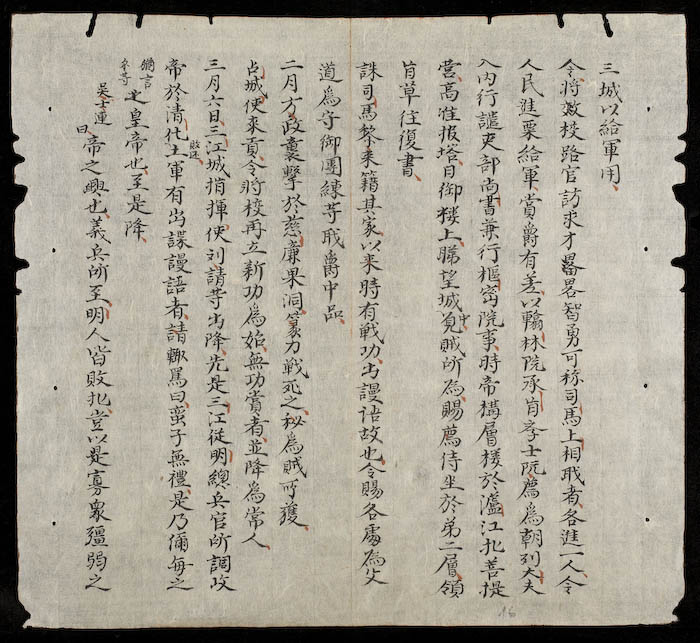 三城以給軍用
令將效校路官訪求才畧畧智勇可称司馬上相戢者各進一人令
人民進粟給軍賞爵有差以翰林院承旨李士阮薦爲朝列大夫
入内行譴吏部尚書兼行樞密院事時帝構層楼於瀘江北菩提
营高准报塔日御楼上勝望城中覓賊所爲賜薦侍坐於第二層領
旨草往復書
誅司馬黎來籍其家以来時有戰功出謾语故也令賜各處爲父
道爲守御團練等戢爵中品
二月方政襲擊於慈廉果洞篆力戰死之秘爲賊所獲
占城使来貢令將校再立新功爲始無功賞者並降爲常人
三月六日三江城指揮使刘請等出降先是三江從明總兵官所調政
敗还
帝於清化土軍有出謀謾語者請輙罵曰蛮子無禮是乃儞每之
儞言
尔等
之皇帝也至是降
吴士連
曰帝之興也義兵所至明人皆敗北豈以是寡衆疆弱之
16